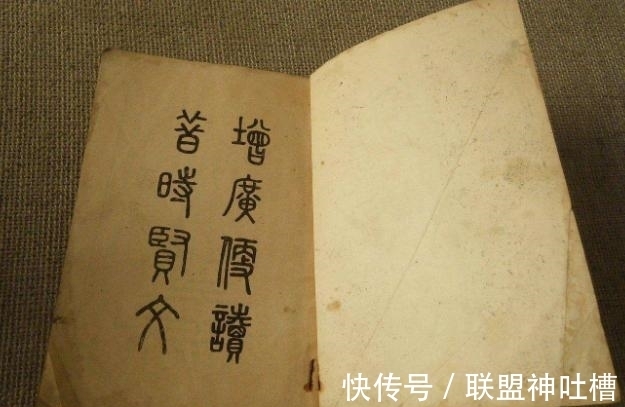 增廣便讀
昔時賢文
快传号 / 联盟神吐槽